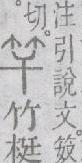 注引說文
切。
竿
竹梃